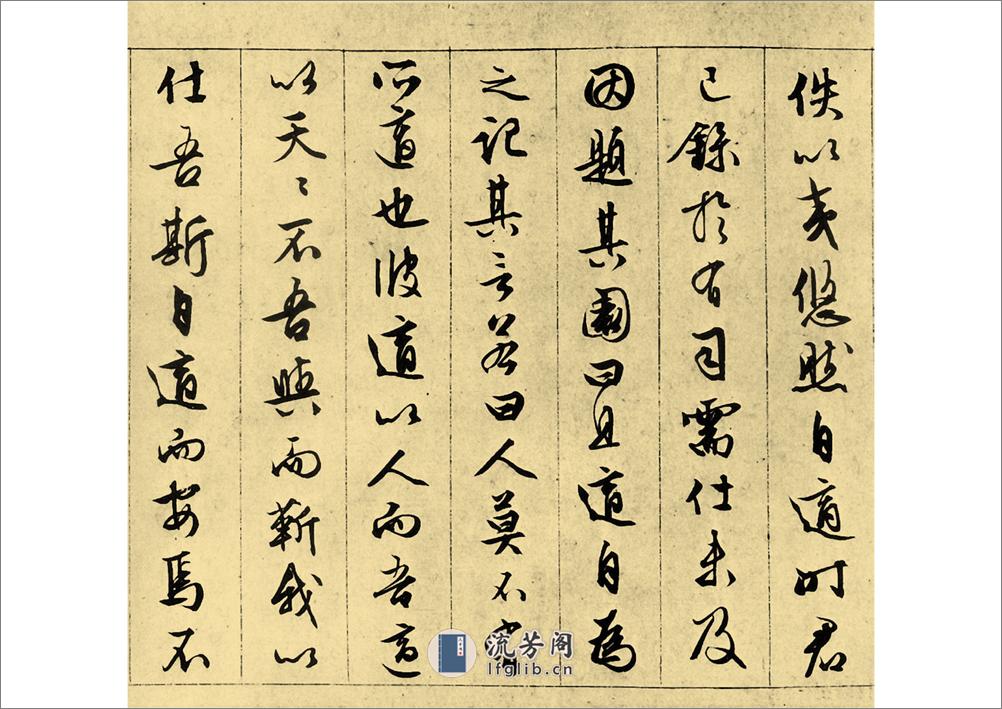 佚以夷悠然自適时君
已錄於有司需仕未及
因題其園曰且適自為
之記其言若曰人莫不有
所適也彼適以人而吾適
以天〻不吾與而靳我以
仕吾斯自適而安焉不
流芳阁
lfglib.cn